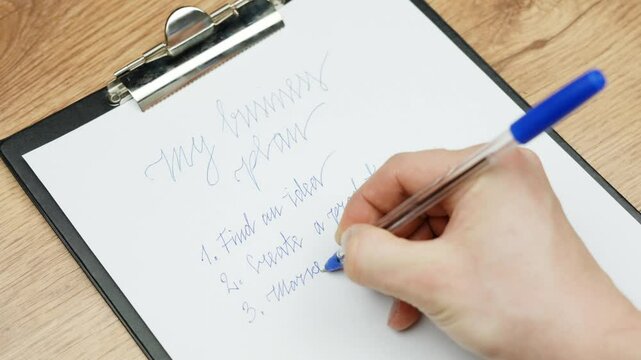 My business
plan
1. Find an idea
2. Create a
3. Marke